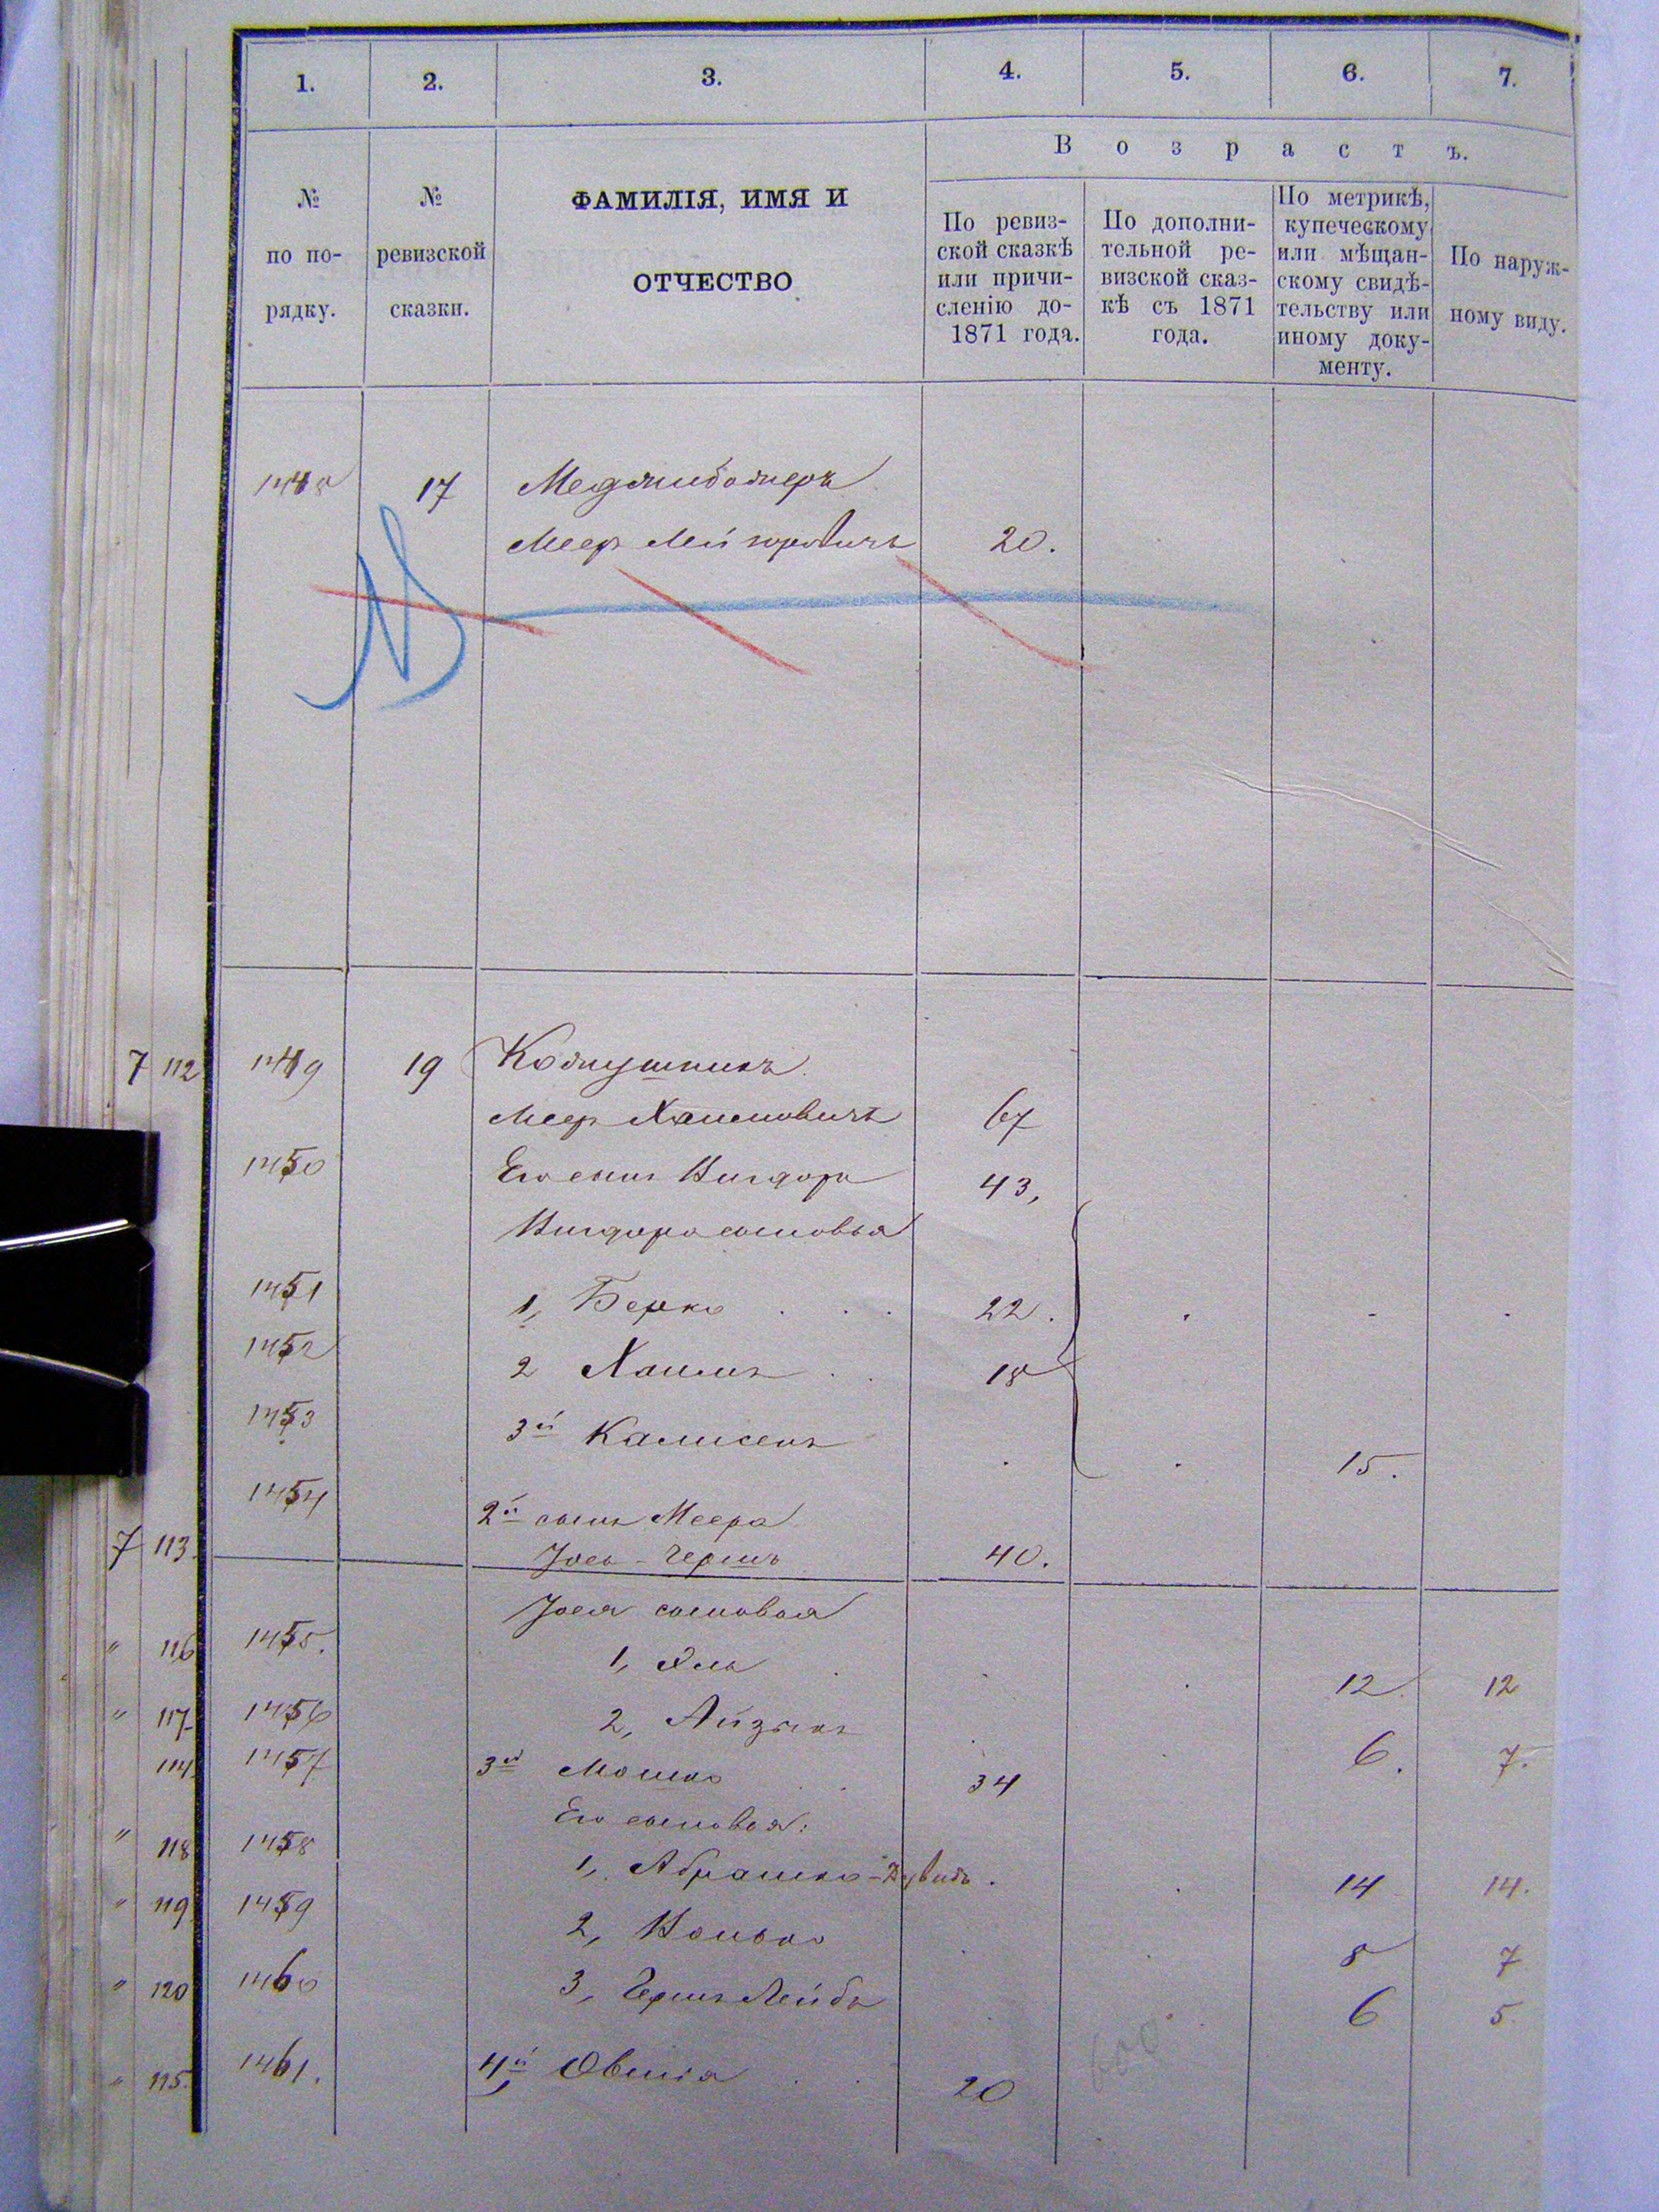 1. 2. 3. 4. 5. 6. 7.
В о з р а с т ъ.
№ по по-рядку.
№ ревизской сказки.
ФАМИЛІЯ, ИМЯ И
ОТЧЕСТВО
По ревиз-
ской сказкѣ
или причи-
сленію до-
1871 года.
По дополни-
тельной ре-
визской сказ-
кѣ съ 1871
года.
По метрикѣ,
купеческому
или мѣщан-
скому свидѣ-
тельству или
иному доку-
менту.
По наруж-
ному виду.
1448 17 Меджибожеръ
Меер 20.
7 112 1449 19
Меер Хаимовичъ 67
1450 Его сынъ Вигдоръ 43,
Вигдора сыновья
1451 1, Берко 22.
1452 2 Хаимъ 18
1453 3й 15.
1454 2й сынъ Меера
7 113 Јось-Гершъ 40.
Јося сыновья
" 116 1455. 1, 12. 12
" 117 1456 2, Айзикъ 6. 7.
114 1457 3й Мошко 34
Его сыновья:
" 118 1458 1, Абрашко-Дувидъ. 14 14.
" 119 1459 2, 8 7
" 120 1460 3, Гершъ Лейбъ 6 5
" 115. 1461. 4й Овшія 20